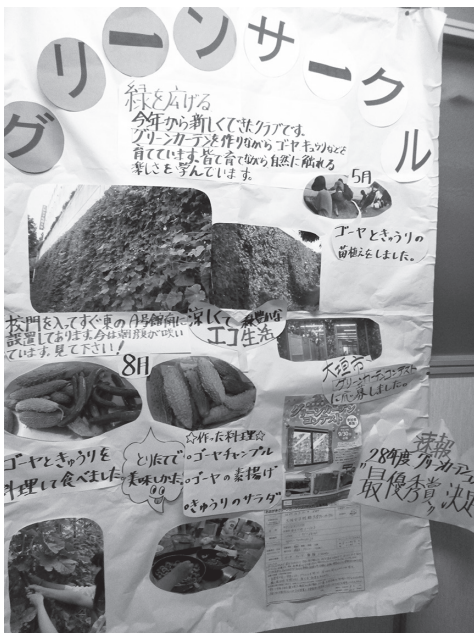 グリーンサークル
緑を広げる
今年から新しくできたクラブです。
グリーンカーテンを作りながらゴーヤキュウリなどを
育てています。皆で育てながら自然に触れる
楽しさを学んでいます。
5月
ゴーヤときゅうりの
苗植えをしました。
校門を入ってすぐ東のA号館南に
設置してあります。今は朝顔が咲い
ています。見て下さい!
涼しくて
エコ生活
大垣市
グリーンカーテンコンテスト
に応募しました。
8月
ゴーヤときゅうりを
料理して食べました
とりたてで
美味しかった
☆作った料理☆
ゴーヤチャンプル
ゴーヤの素揚げ
きゅうりのサラダ
速報
28年度グリーンカーテン
"最優秀賞"決定